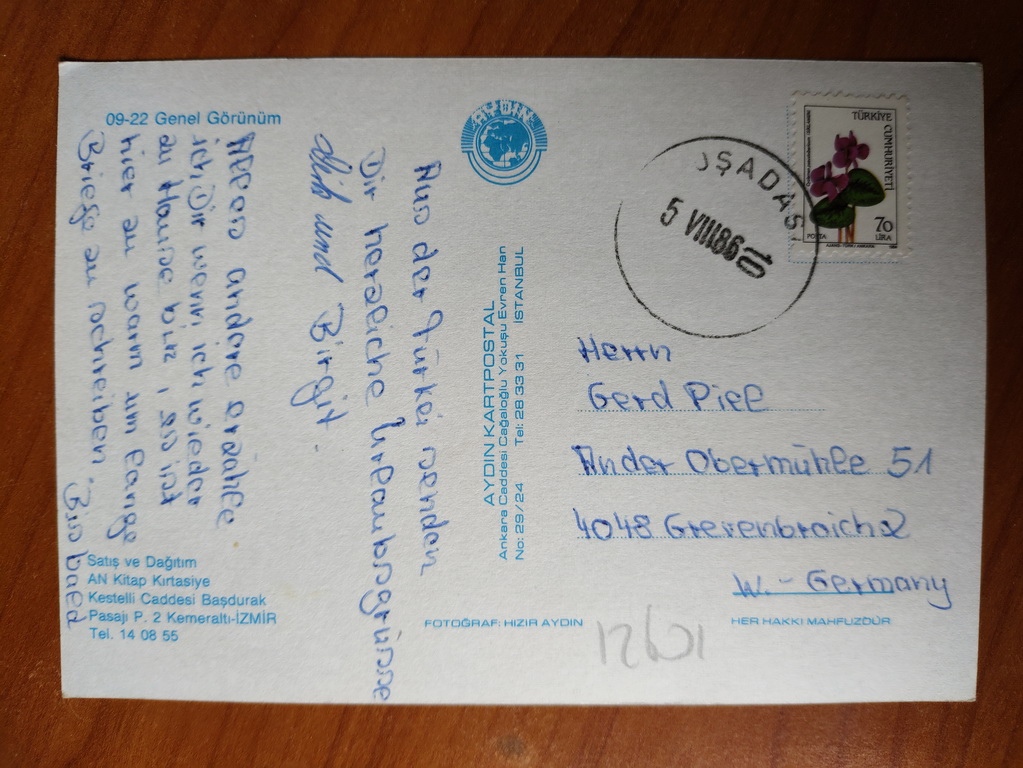 09-22 Genel Görünüm
Aus der Türkei senden
Dir herzliche Urlaubsgrüsse
Dirk und Birgit.
Alles andere erzähle
ich Dir wenn ich wieder
zu Hause bin, es ist
hier zu warm um lange
Briefe zu schreiben. Bis bald
AYDIN
AYDIN KARTPOSTAL
Ankara Caddesi Cağaloğlu Yokuşu Evren Han
No: 29/24 Tel: 28 33 31 İSTANBUL
TÜRKİYE CUMHURİYETİ
70
LİRA
POSTA
UŞADAS
5 VIII86 10
Herrn
Gerd Piel
An der Obermühle 51
4048 Grevenbroich 2
W. - Germany
Satış ve Dağıtım
AN Kitap Kırtasiye
Kestelli Caddesi Başdurak
Pasajı P. 2 Kemeraltı-İZMİR
Tel. 14 08 55
FOTOĞRAF: HIZIR AYDIN
HER HAKKI MAHFUZDUR